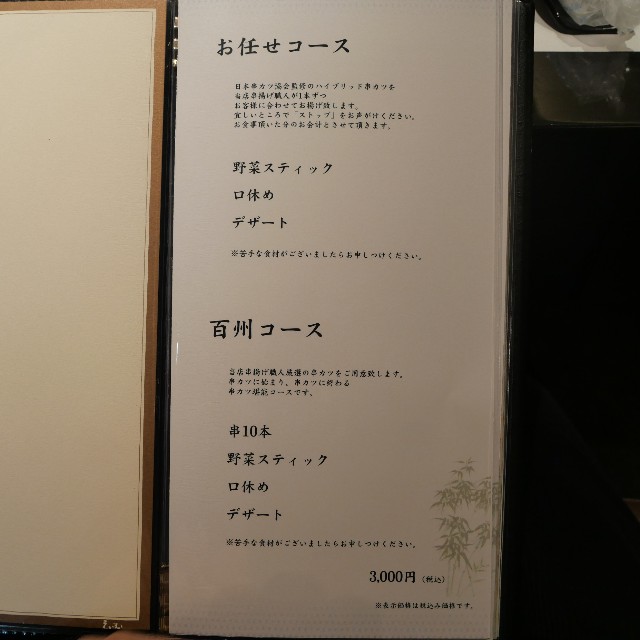 お任せコース
日本串カツ協会監修のハイブリッド串カツを
当店串揚げ職人が1本ずつ
お客様に合わせてお揚げ致します。
宜しいところで「ストップ」をお声がけください。
お食事頂いた分のお会計とさせて頂きます。
野菜スティック
口休め
デザート
※苦手な食材がございましたらお申しつけください。
百州コース
当店串揚げ職人厳選の串カツをご用意致します。
串カツに始まり、串カツに終わる
串カツ堪能コースです。
串10本
野菜スティック
口休め
デザート
※苦手な食材がございましたらお申しつけください。
3,000円（税込）
※表示価格は税込み価格です。